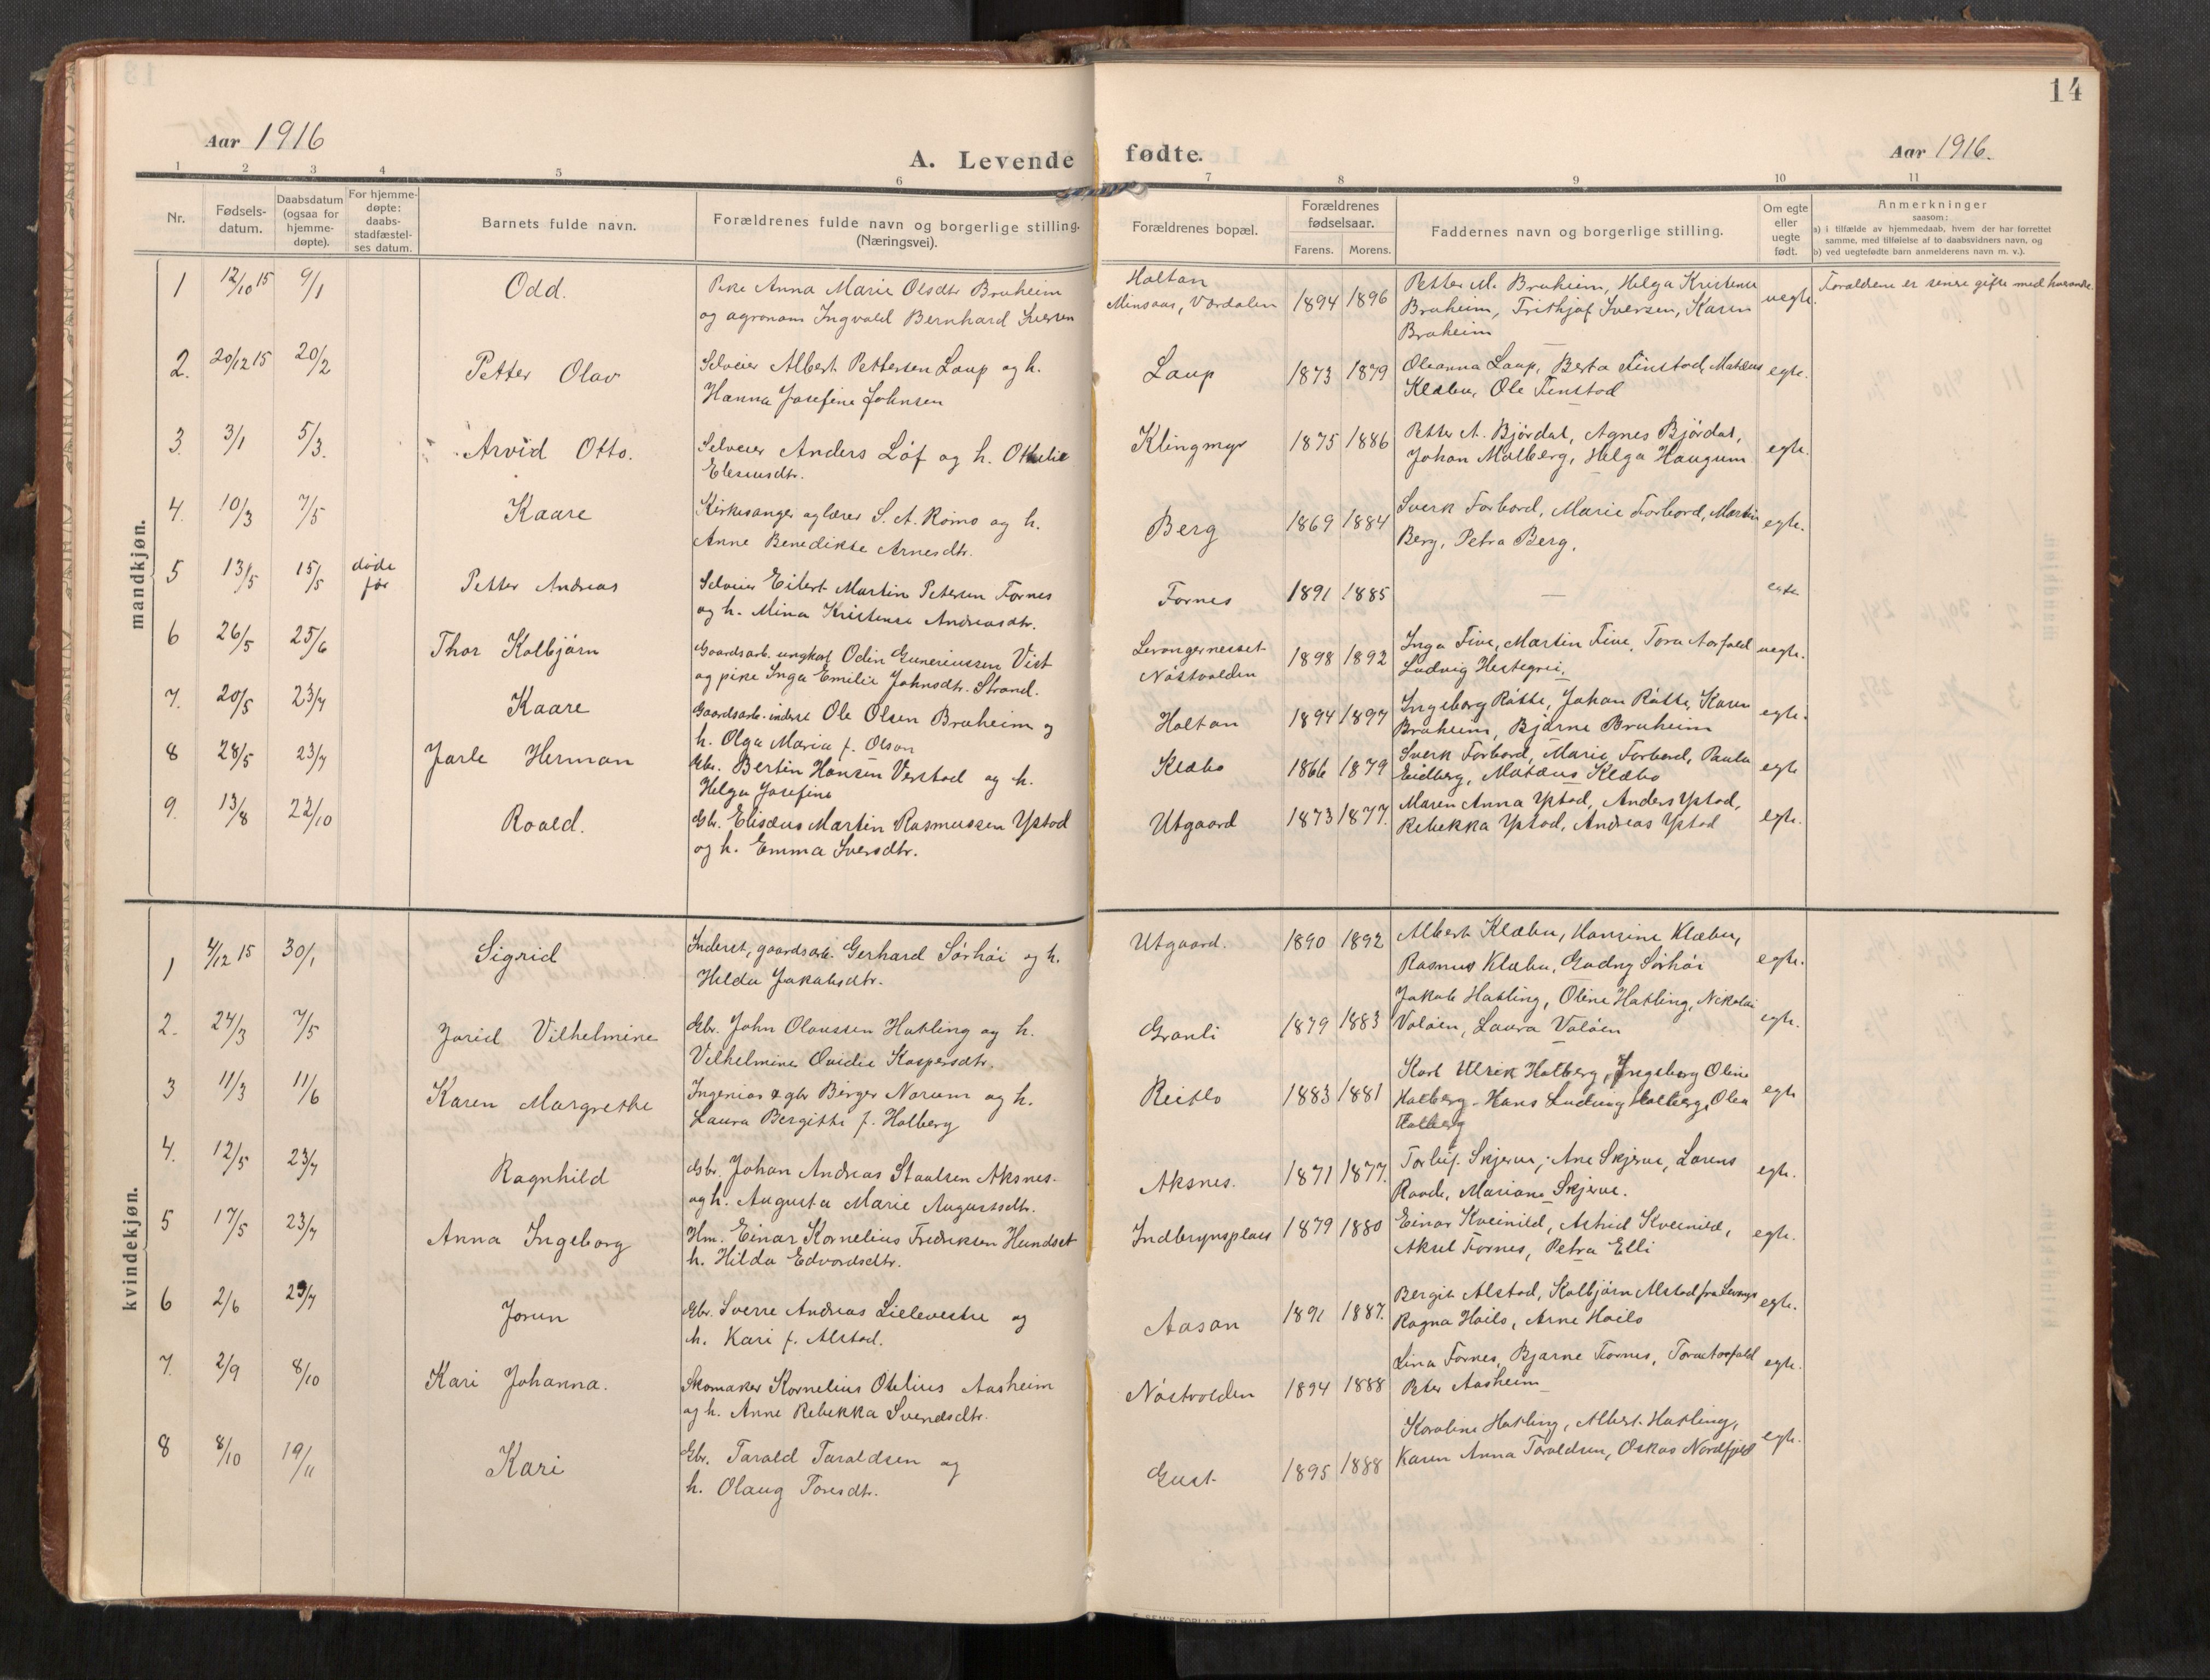 14
Aar 1916
A. Levende fødte.
Aar 1916.
1 2 3 4 5 6 7 8 9 10 11
Nr.
Fødsels-
datum.
Daabsdatum
(ogsaa for
hjemme-
døpte).
For hjemme-
døpte:
daabs-
stadfæstel-
ses datum.
Barnets fulde navn.
Forældrenes fulde navn og borgerlige stilling.
(Næringsvei).
Forældrenes bopæl.
Forældrenes
fødselsaar.
Farens. Morens.
Faddernes navn og borgerlige stilling.
Om egte
eller
uegte
født.
Anmerkninger
saasom:
a) i tilfælde av hjemmedaab, hvem der har forrettet
samme, med tilføielse af to daabsvidners navn, og
b) ved uegtefødte barn anmelderens navn m. v.).
mandkjøn.
1 12/10 15 9/1 Odd.
Pike Anna Marie Olsdtr Bruheim
og agronom Ingvald Bernhard Iversen
Holtan
Minsaas, Værdalen
1894 1896
Petter M. Bruheim, Helga Kristense
Bruheim, Frithjof Iversen, Karen
Bruheim
uegte.
Foreldrene er senere gifte med hverandre.
2. 20/12 15 20/2 Petter Olav
Selveier Albert Pettersen Laup og h.
Hanna Josefine Johnsen
Laup 1873 1879
Oleanna Laup, Berta Finstad, Matæus
Klæbu, Ole Finstad
egte.
3. 3/1 5/3. Arvid Otto.
Selveier Anders Löf og h. Othelie
Eleseusdtr.
Klingmyr 1875 1886
Petter A. Björdal, Agnes Björdal,
Johan Molberg, Helga Haugum
egte.
4. 10/3 7/5 Kaare
Kirkesanger og lærer S. A. Romo og h.
Anne Benedikte Arnesdtr.
Berg 1869 1884
Sverk Forbord, Marie Forbord, Martin
Berg, Petra Berg.
egte.
5 13/5 15/5 döde
før
Petter Andreas
Selveier Eilert Martin Petersen Fornes
og h. Mina Kristense Andreasdtr.
Fornes 1891 1885 — egte
6 26/5 25/6 Thor Kolbjörn
Gaardsarb. ungkarl Odin Guneriussen Vist
og pike Inga Emilie Johnsdtr. Strand.
Levangernesset
Nöstvolden
1898 1892
Inga Five, Martin Five, Tora Aasfald
Ludvig Hestegrei.
uegte.
7. 20/5 23/7 Kaare
Gaardsarb. inderst Ole Olsen Bruheim og
h. Olga Maria f. Olson
Holtan 1894 1897
Ingeborg Råtte, Johan Råtte, Karen
Bruheim, Bjarne Bruheim
egte.
8 28/5 23/7 Jarle Herman
Gbr. Bertin Hansen Verstad og h.
Helga Josefine
Klæbo 1866 1879
Sverk Forbord, Marie Forbord, Paula
Eidberg, Matæus Klæbo
egte
9. 13/8 22/10 Roald.
Gbr. Elisæus Martin Rasmussen Ystad
og h. Emma Iversdtr.
Utgaard 1873 1877.
Maren Anna Ystad, Anders Ystad,
Rebekka Ystad, Andreas Ystad
egte.
kvindekjøn.
1 4/12 15 30/1 Sigrid
Inderst, gaardsarb. Gerhard Sörhöi og h.
Hilda Jakobsdtr.
Utgaard. 1890 1892
Albert Klæbu, Hansine Klæbu,
Rasmus Klæbu, Gudny Sörhöi
egte.
2. 24/3 7/5 Jorid Vilhelmine
Gbr. John Olaussen Hatling og h.
Vilhelmine Ovidie Kaspersdtr.
Granli 1879 1883
Jakob Hatling, Oline Hatling, Nikolai
Valöen, Laura Valöen
egte.
3 11/3 11/6 Karen Margrethe
Ingeniör & gbr Birger Norum og h.
Laura Bergitte f. Holberg
Reitlo 1883 1881
Karl Ulrik Holberg, Ingeborg Oline
Holberg, Hans Ludvig Holberg, Olea
Holberg
egte
4. 12/5 23/7 Ragnhild
Gbr. Johan Andreas Staalsen Aksnes
og h. Augusta Marie Augustsdtr.
Aksnes. 1871 1877.
Torleif Skjerve, Ane Skjerve, Lorens
Raade, Mariane Skjerve.
egte.
5 17/5 23/7 Anna Ingeborg
Hm. Einar Kornelius Fredriksen Hundset
h. Hilda Edvardsdtr.
Indbrynsplads 1879 1880
Einar Kveinild, Astrid Kveinild,
Aksel Fornes, Petra Elli
egte.
6 2/6 23/7 Jorun
Gbr. Sverre Andreas Lielevestre og
h. Kari f. Alstad.
Aasan 1891 1887.
Bergit Alstad, Kolbjörn Alstad fra Levanger
Ragna Hoils, Arne Hoils
egte.
7. 2/9 8/10 Kari Johanna.
Skomaker Kornelius Otelius Aasheim
og h. Anne Rebekka Svendsdtr.
Nöstvolden 1894 1888
Lina Fornes, Bjarne Fornes, Tora Aasfald
Peter Aasheim
egte.
8 8/10 19/11 Kari
Gbr. Tarald Taraldsen og
h. Olaug Toresdtr.
Gust 1895 1888
Karoline Hatling, Albert Hatling,
Karen Anna Taraldsen, Oskar Nordfjell
egte.